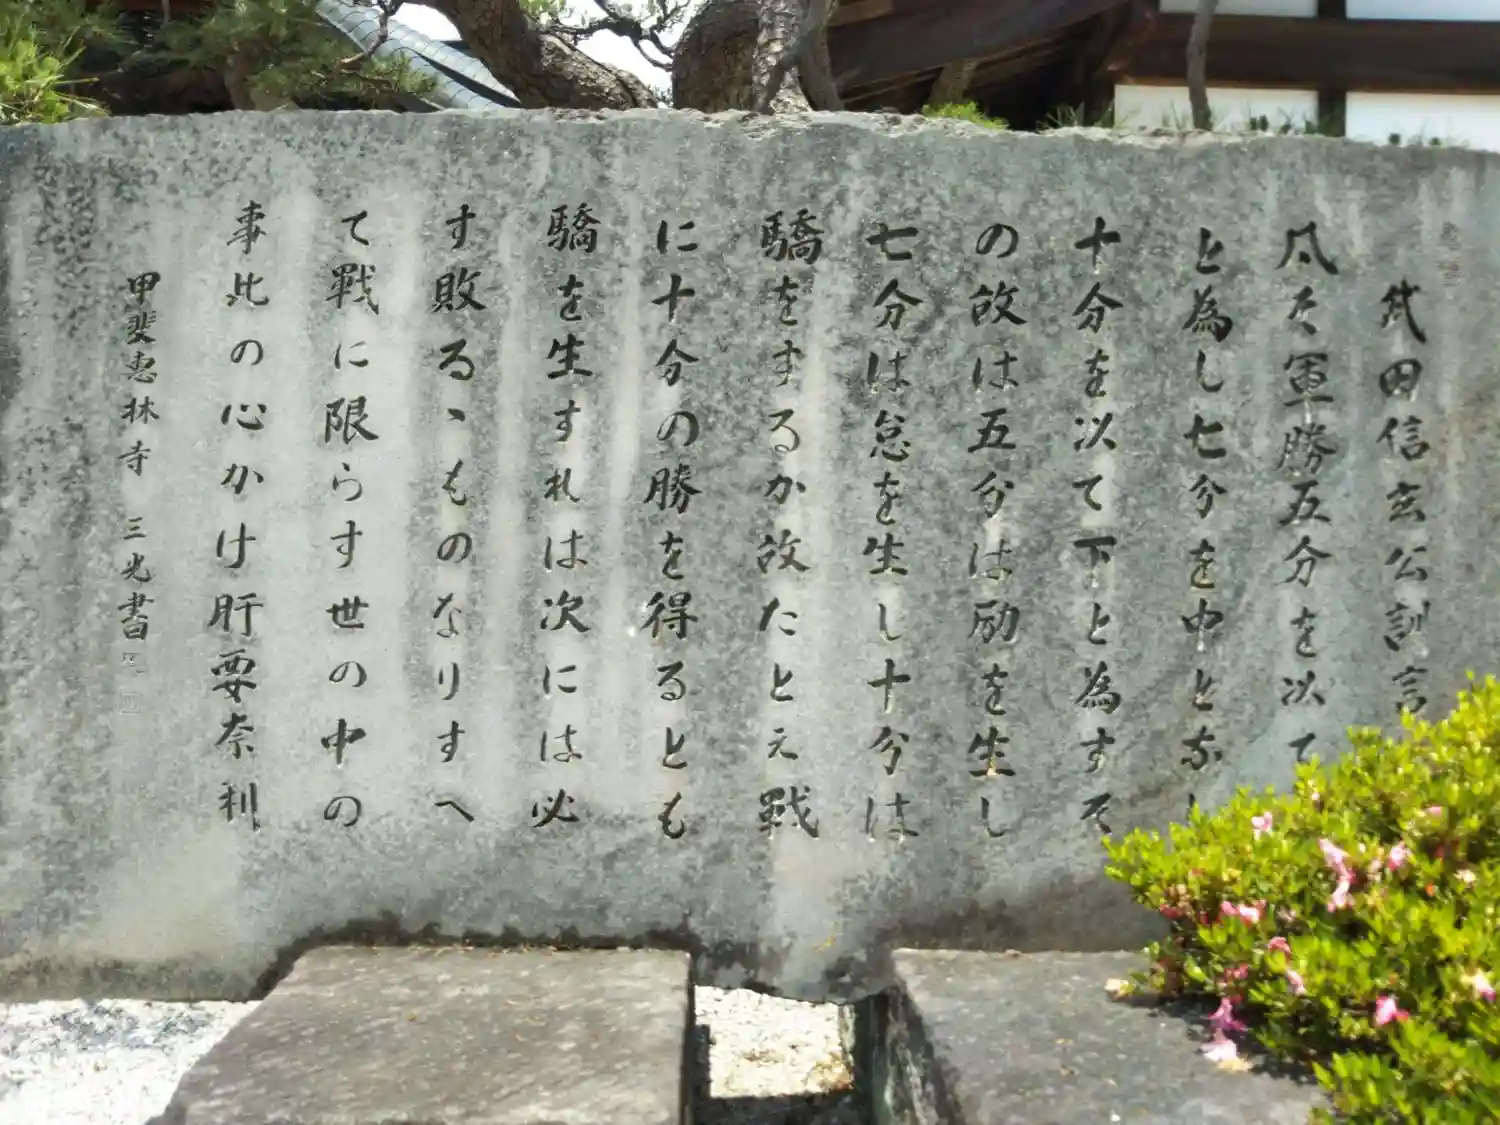 武田信玄公訓言
凡そ軍勝五分を以て
と為し七分を中と為し
十分を以て下と為すそ
の故は五分は励を生し
七分は怠を生し十分は
驕をするか故たとえ戦
に十分の勝を得るとも
驕を生すれは次には必
す敗るゝものなりすへ
て戦に限らす世の中の
事此の心かけ肝要奈利
甲斐恵林寺 三光書